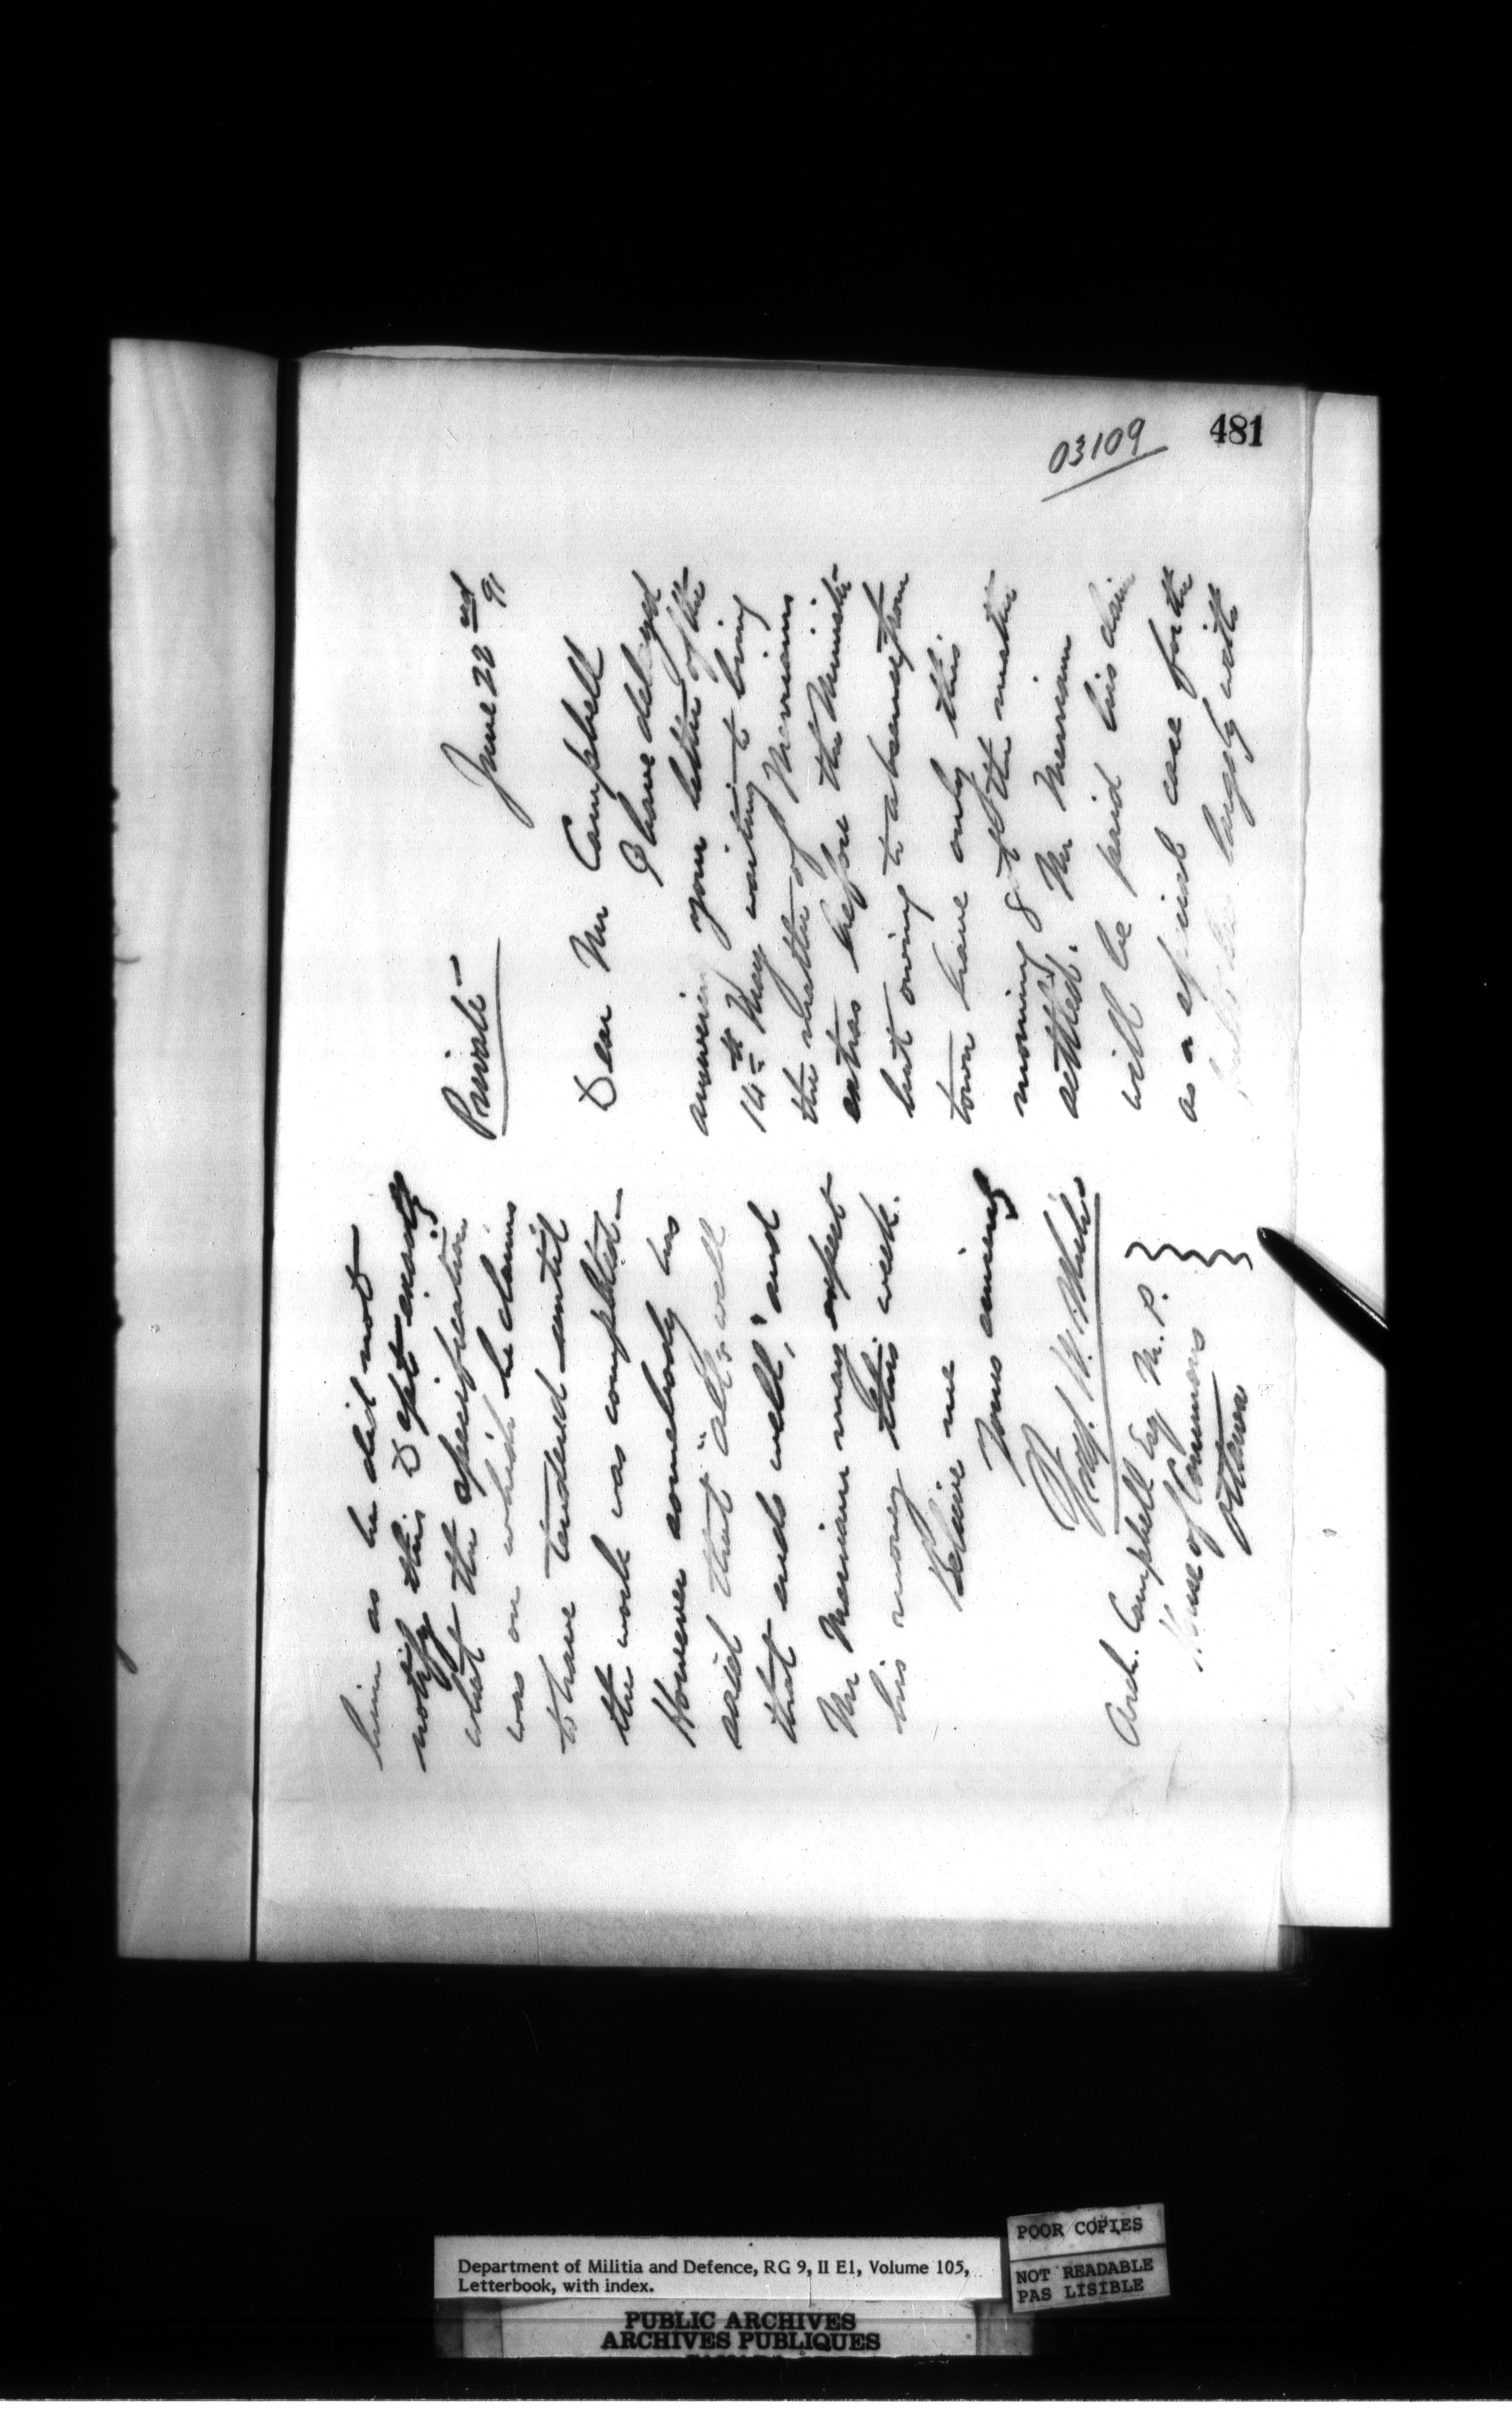 481
03109
Private -
June 22nd 91
Dear Mr Campbell
I have delayed
answering your letter of the
14th May waiting to bring
the matter of Merriams
extras before the Minister
but owing to absence from
town have only this
morning got the matter
settled. Mr Merriam
will be paid his claim
as a special case for the
largely with
him as he did not
notify this Dept exactly
what the specification
was on which he claims
to have tendered until
the work was completed -
However somebody has
said that "all's well
that ends well," and
Mr Merriam may expect
his money this week.
Believe me
Yours sincerely
Arch. Campbell Esq M.P.
House of Commons
Ottawa
Department of Militia and Defence, RG 9, II E1, Volume 105,
Letterbook, with index.
POOR COPIES
NOT READABLE
PAS LISIBLE
PUBLIC ARCHIVES
ARCHIVES PUBLIQUES